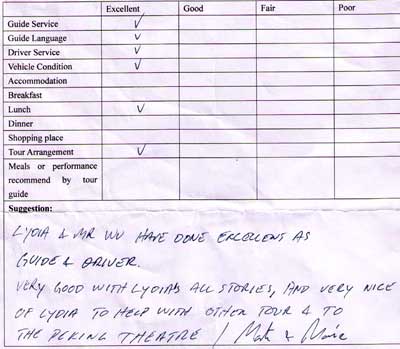 Excellent Good Fair Poor
Guide Service ✓
Guide Language ✓
Driver Service ✓
Vehicle Condition ✓
Accommodation
Breakfast
Lunch ✓
Dinner
Shopping place
Tour Arrangement ✓
Meals or performance
recommend by tour
guide
Suggestion:
LYDIA & MR WU HAVE DONE EXCELLENT AS
GUIDE & DRIVER.
VERY GOOD WITH LYDIAS ALL STORIES, AND VERY NICE
OF LYDIA TO HELP WITH OTHER TOUR & TO
THE PEKING THEATRE /